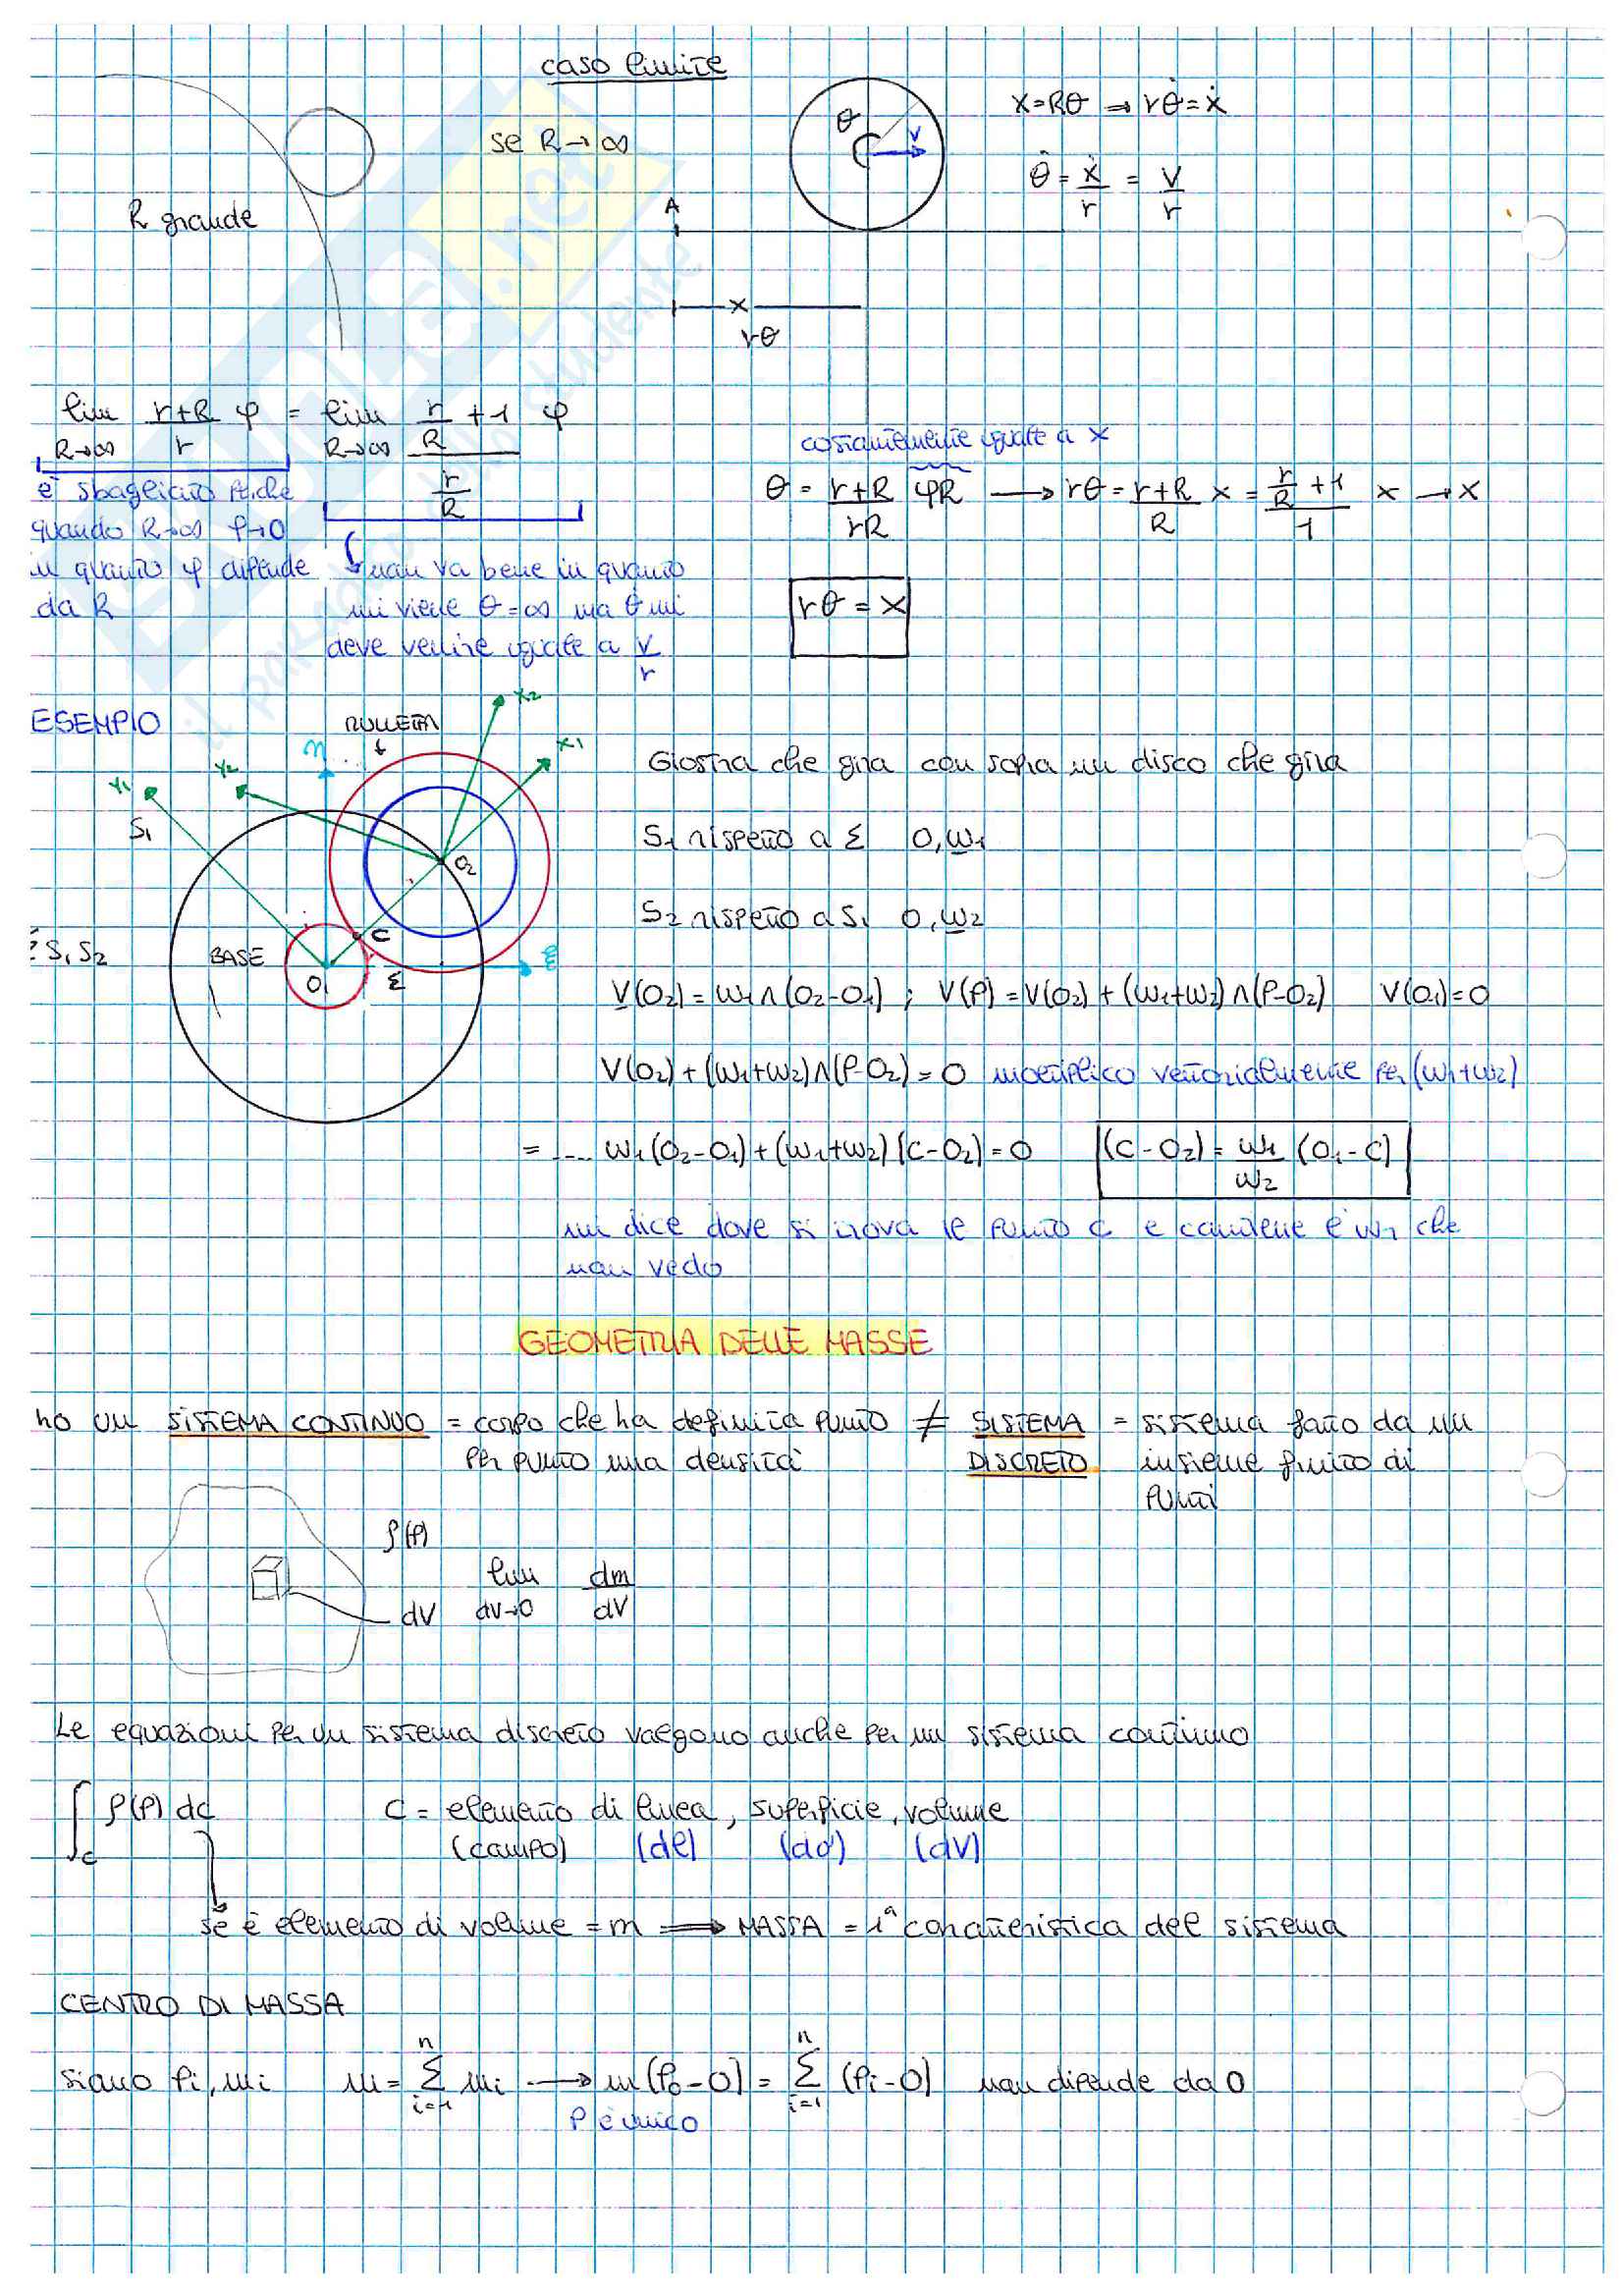 caso limite
se R→∞
R grande
θ
v
x=Rθ ⇒ rθ̇=ẋ
θ̇ = ẋ/r = v/r
A
x
rθ
lim R→∞ (r+R)/r φ = lim R→∞ (r/R +1)/(r/R) φ
è sbagliato perché
quando R→∞ φ→0
in quanto φ dipende
da R
non va bene in quanto
mi viene θ=∞ ma θ mi
deve venire uguale a v/r
costantemente uguale a x
θ = (r+R)/(rR) φR → rθ = (r+R)/R x = (r/R +1)/1 x → x
rθ = x
ESEMPIO
RULLETTA
η
x2
x1
y2
y1
S1
O2
C
BASE
O1
Σ
ξ
S1 S2
Giostra che gira con sopra un disco che gira
S1 rispetto a Σ O, ω1
S2 rispetto a S1 O, ω2
V(O2) = ω1∧(O2-O1) ; V(P) = V(O2) + (ω1+ω2)∧(P-O2) V(O1)=0
V(O2) + (ω1+ω2)∧(P-O2) = 0 moltiplico vettorialmente per (ω1+ω2)
= .... ω1(O2-O1)+(ω1+ω2)(C-O2)=0 (C-O2) = ω1/ω2 (O1-C)
mi dice dove si trova il punto C e contiene è ω1 che
non vedo
GEOMETRIA DELLE MASSE
ho un SISTEMA CONTINUO = corpo che ha definita punto ≠ SISTEMA = sistema fatto da un
per punto una densità DISCRETO insieme finito di
punti
ρ(P)
dV
lim dV→0 dm/dV
Le equazioni per un sistema discreto valgono anche per un sistema continuo
∫c ρ(P) dc C = elemento di linea, superficie, volume
(campo) (dl) (dσ) (dV)
se è elemento di volume = m ⟹ MASSA = 1ª caratteristica del sistema
CENTRO DI MASSA
siano Pi, mi m = Σ i=1 n mi → m(P0-O) = Σ i=1 n (Pi-O) non dipende da O
P è unico